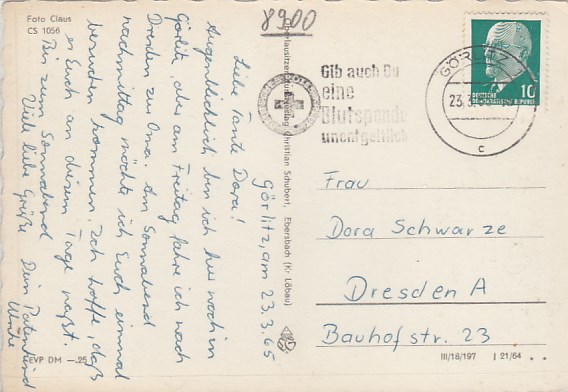 Foto Claus
CS 1056
8900
Görlitz, am 23.3.65
Liebe Tante Dora!
Augenblicklich bin ich hier noch in
Görlitz, aber am Freitag fahre ich nach
Dresden zur Oma. Am Sonnabend
nachmittag möchte ich Euch einmal
besuchen kommen. Ich hoffe, daß
es Euch an diesem Tage paßt.
Bis zum Sonnabend
Viele liebe Grüße Dein Patenkind
EVP DM —.25
Christian Schubert, Ebersbach (Kr. Löbau)
Gib auch Du
eine
Blutspende
unentgeltlich
GÖRLITZ
23.
c
10
DEUTSCHE
DEMOKRATISCHE REPUBLIK
Frau
Dora Schwarze
Dresden A
Bauhofstr. 23
III/18/197 J 21/64